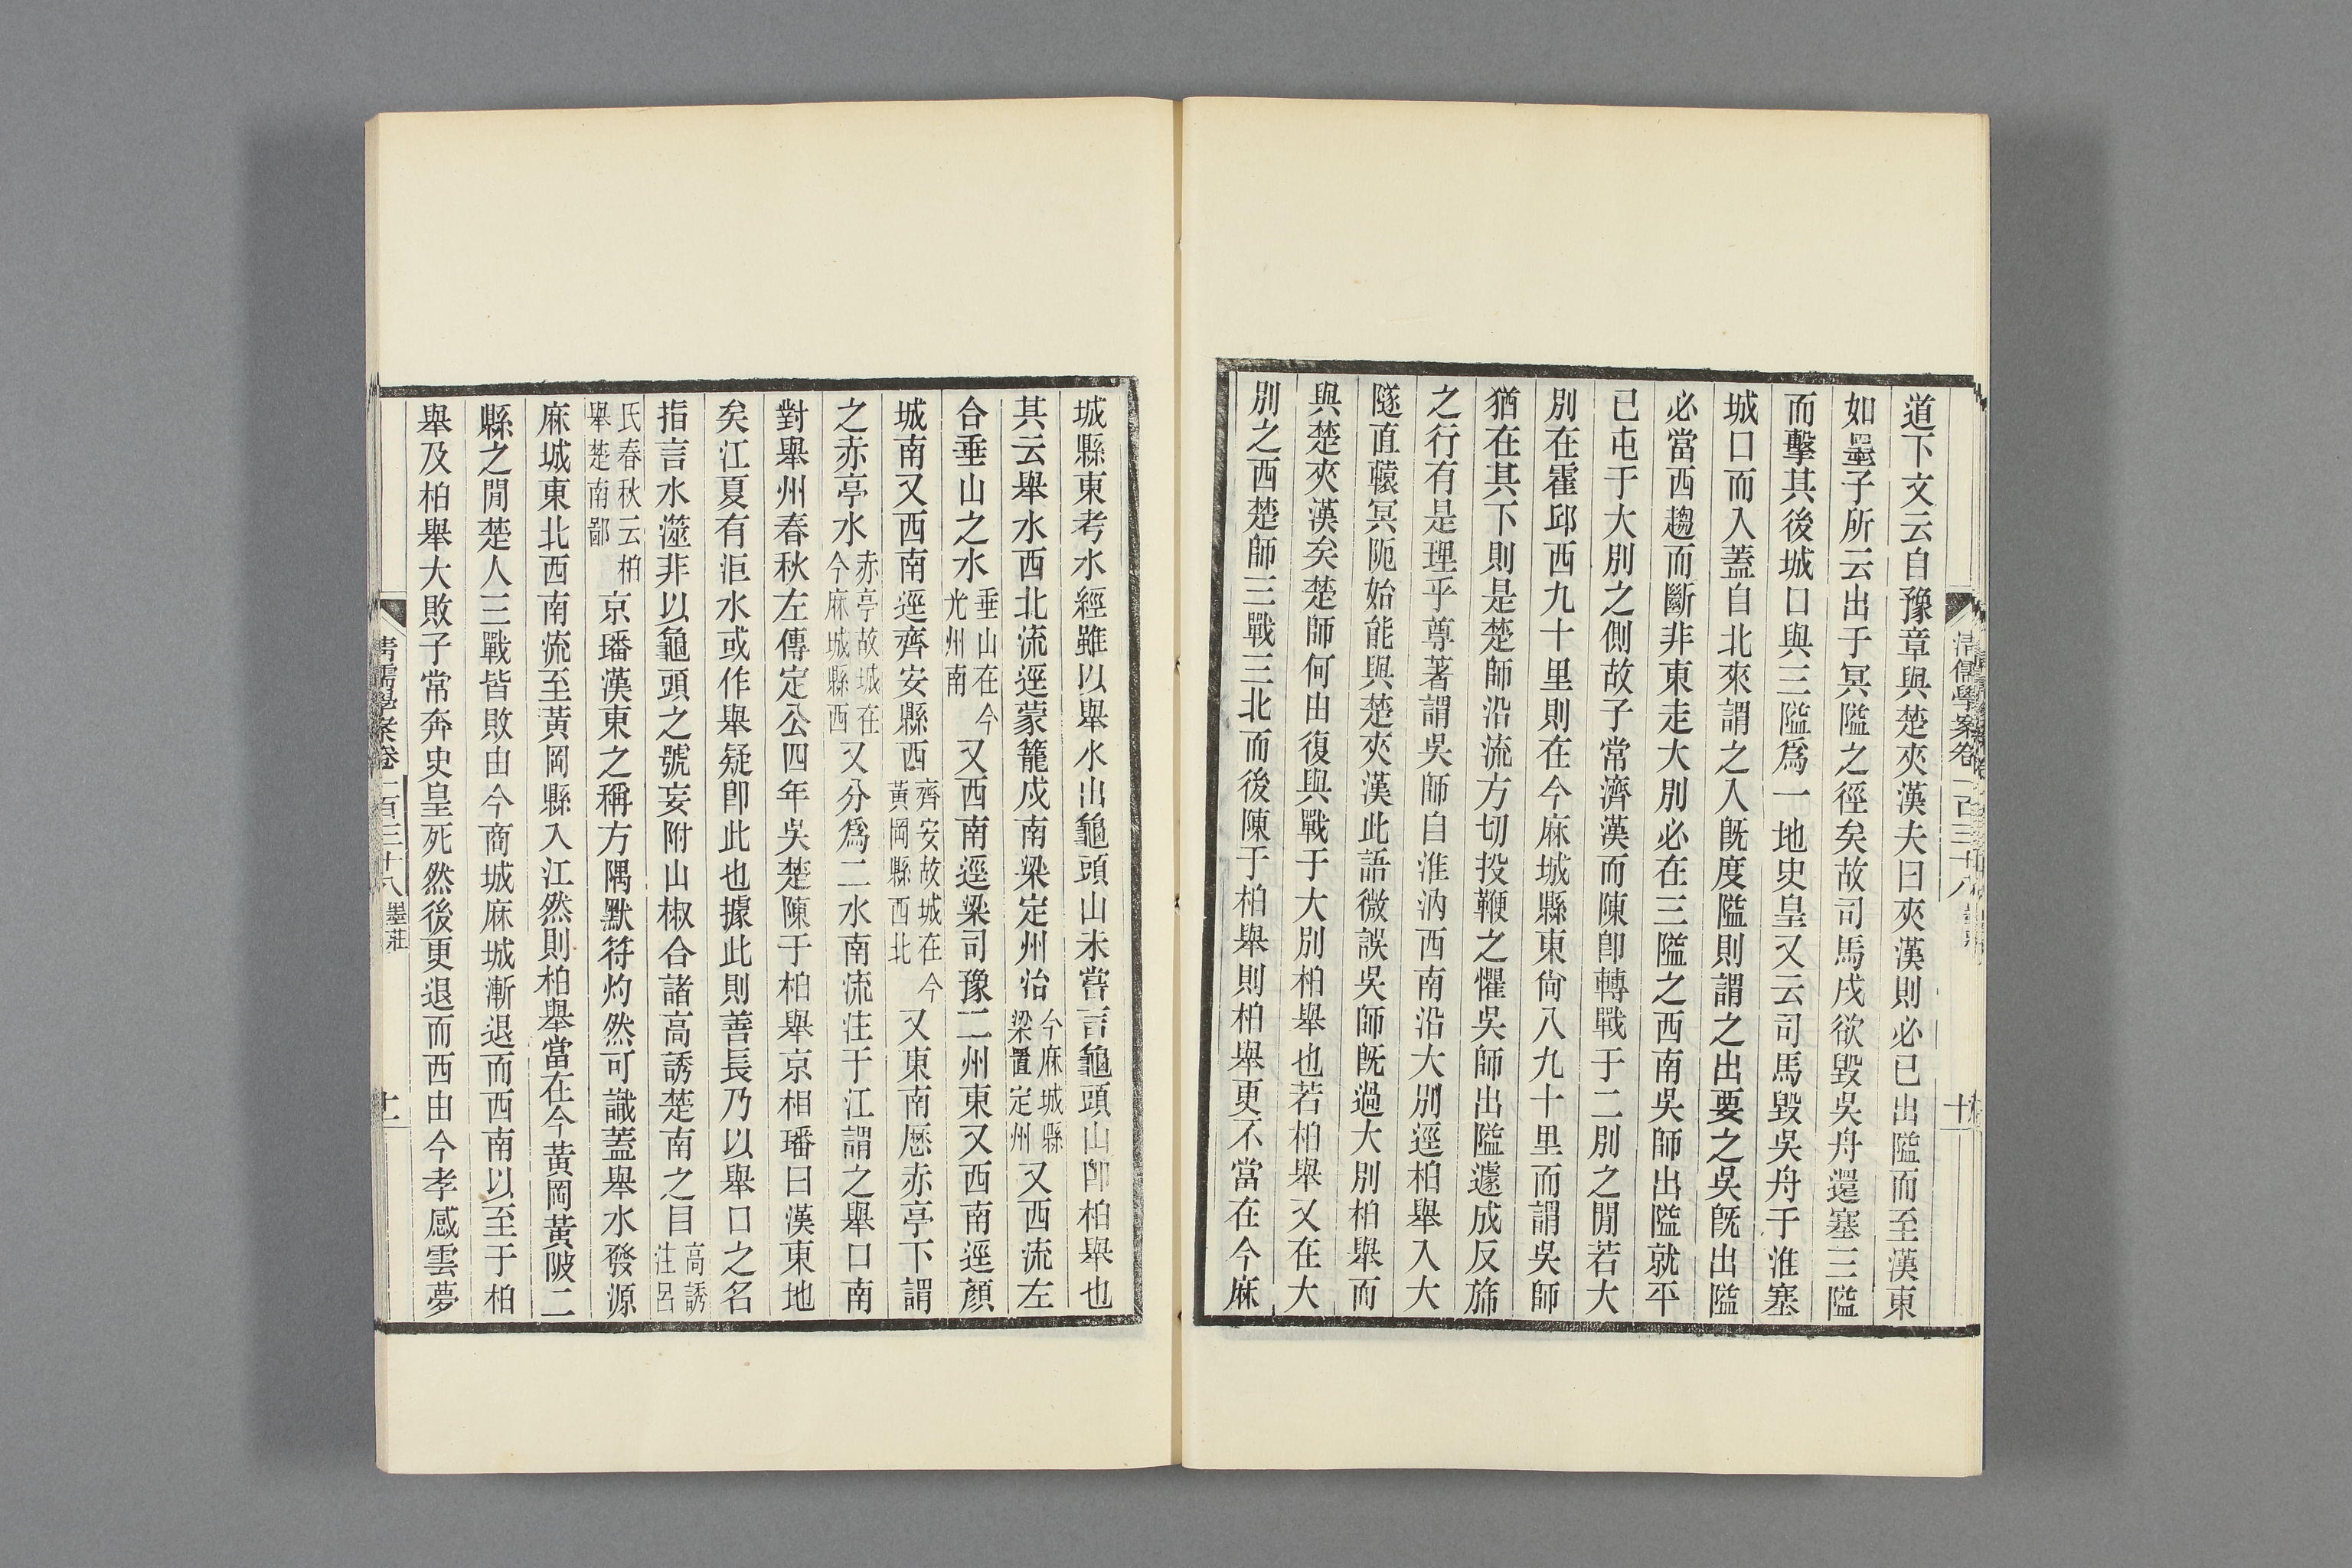 道下文云自豫章與楚夾漢夫曰夾漢則必已出隘而至漢東
如墨子所云出于冥隘之徑矣故司馬戌欲毀吳舟還塞三隘
而擊其後城口與三隘爲一地史皇又云司馬毀吳舟于淮塞
城口而入蓋自北來謂之入旣度隘則謂之出要之吳旣出隘
必當西趨而斷非東走大別必在三隘之西南吳師出隘就平
已屯于大別之側故子常濟漢而陳卽轉戰于二別之閒若大
別在霍邱西九十里則在今麻城縣東尙八九十里而謂吳師
猶在其下則是楚師沿流方切投鞭之懼吳師出隘遽成反斾
之行有是理乎尊著謂吳師自淮汭西南沿大別逕柏舉入大
隧直轅冥阨始能與楚夾漢此語微誤吳師旣過大別柏舉而
與楚夾漢矣楚師何由復與戰于大別柏舉也若柏舉又在大
別之西楚師三戰三北而後陳于柏舉則柏舉更不當在今麻
城縣東考水經雖以舉水出龜頭山未嘗言龜頭山卽柏舉也
其云舉水西北流逕蒙籠戍南梁定州治今麻城縣梁置定州又西流左
合垂山之水垂山在今光州南又西南逕梁司豫二州東又西南逕顏
城南又西南逕齊安縣西齊安故城在今黃岡縣西北又東南歷赤亭下謂
之赤亭水赤亭故城在今麻城縣西又分爲二水南流注于江謂之舉口南
對舉州春秋左傳定公四年吳楚陳于柏舉京相璠曰漢東地
矣江夏有洰水或作舉疑卽此也據此則善長乃以舉口之名
指言水澨非以龜頭之號妄附山椒合諸高誘楚南之目高誘注呂
氏春秋云柏舉楚南鄙京璠漢東之稱方隅默符灼然可識蓋舉水發源
麻城東北西南流至黃岡縣入江然則柏舉當在今黃岡黃陂二
縣之閒楚人三戰皆敗由今商城麻城漸退而西南以至于柏
舉及柏舉大敗子常奔史皇死然後更退而西由今孝感雲夢
清儒學案卷一百三十八 墨莊 十一